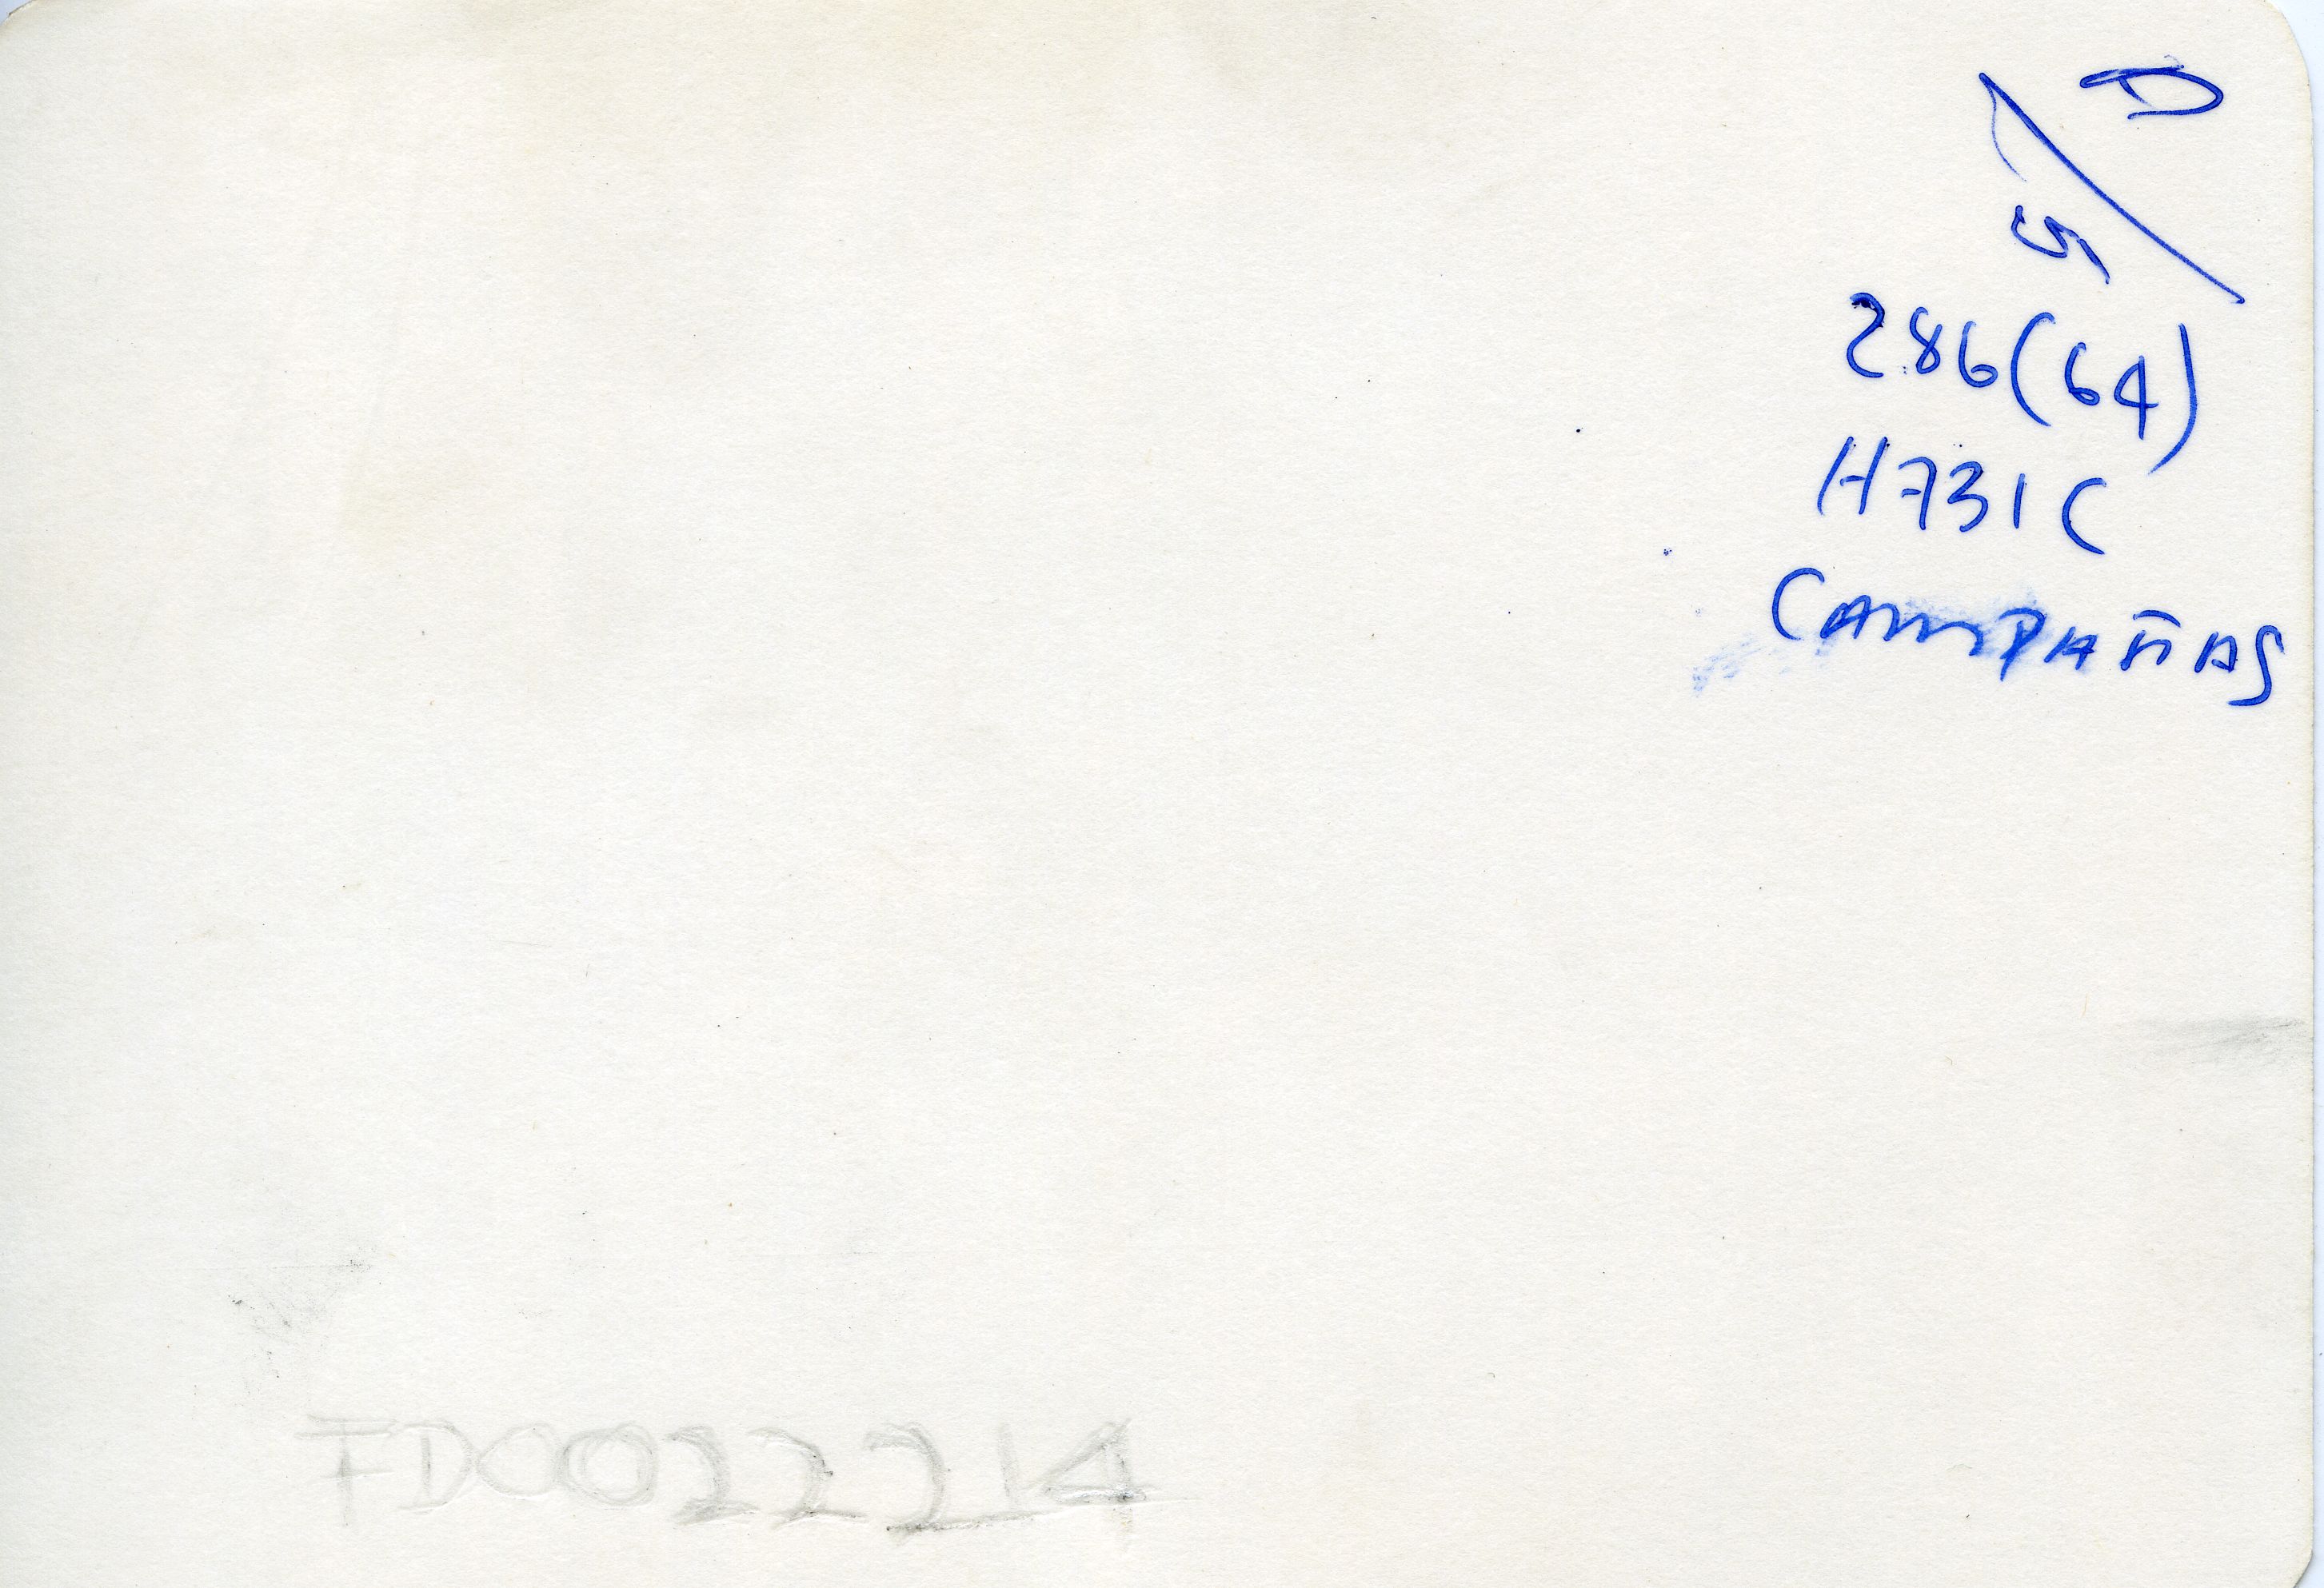 286(64)
H731C
CAMPAÑAS
FD0022214